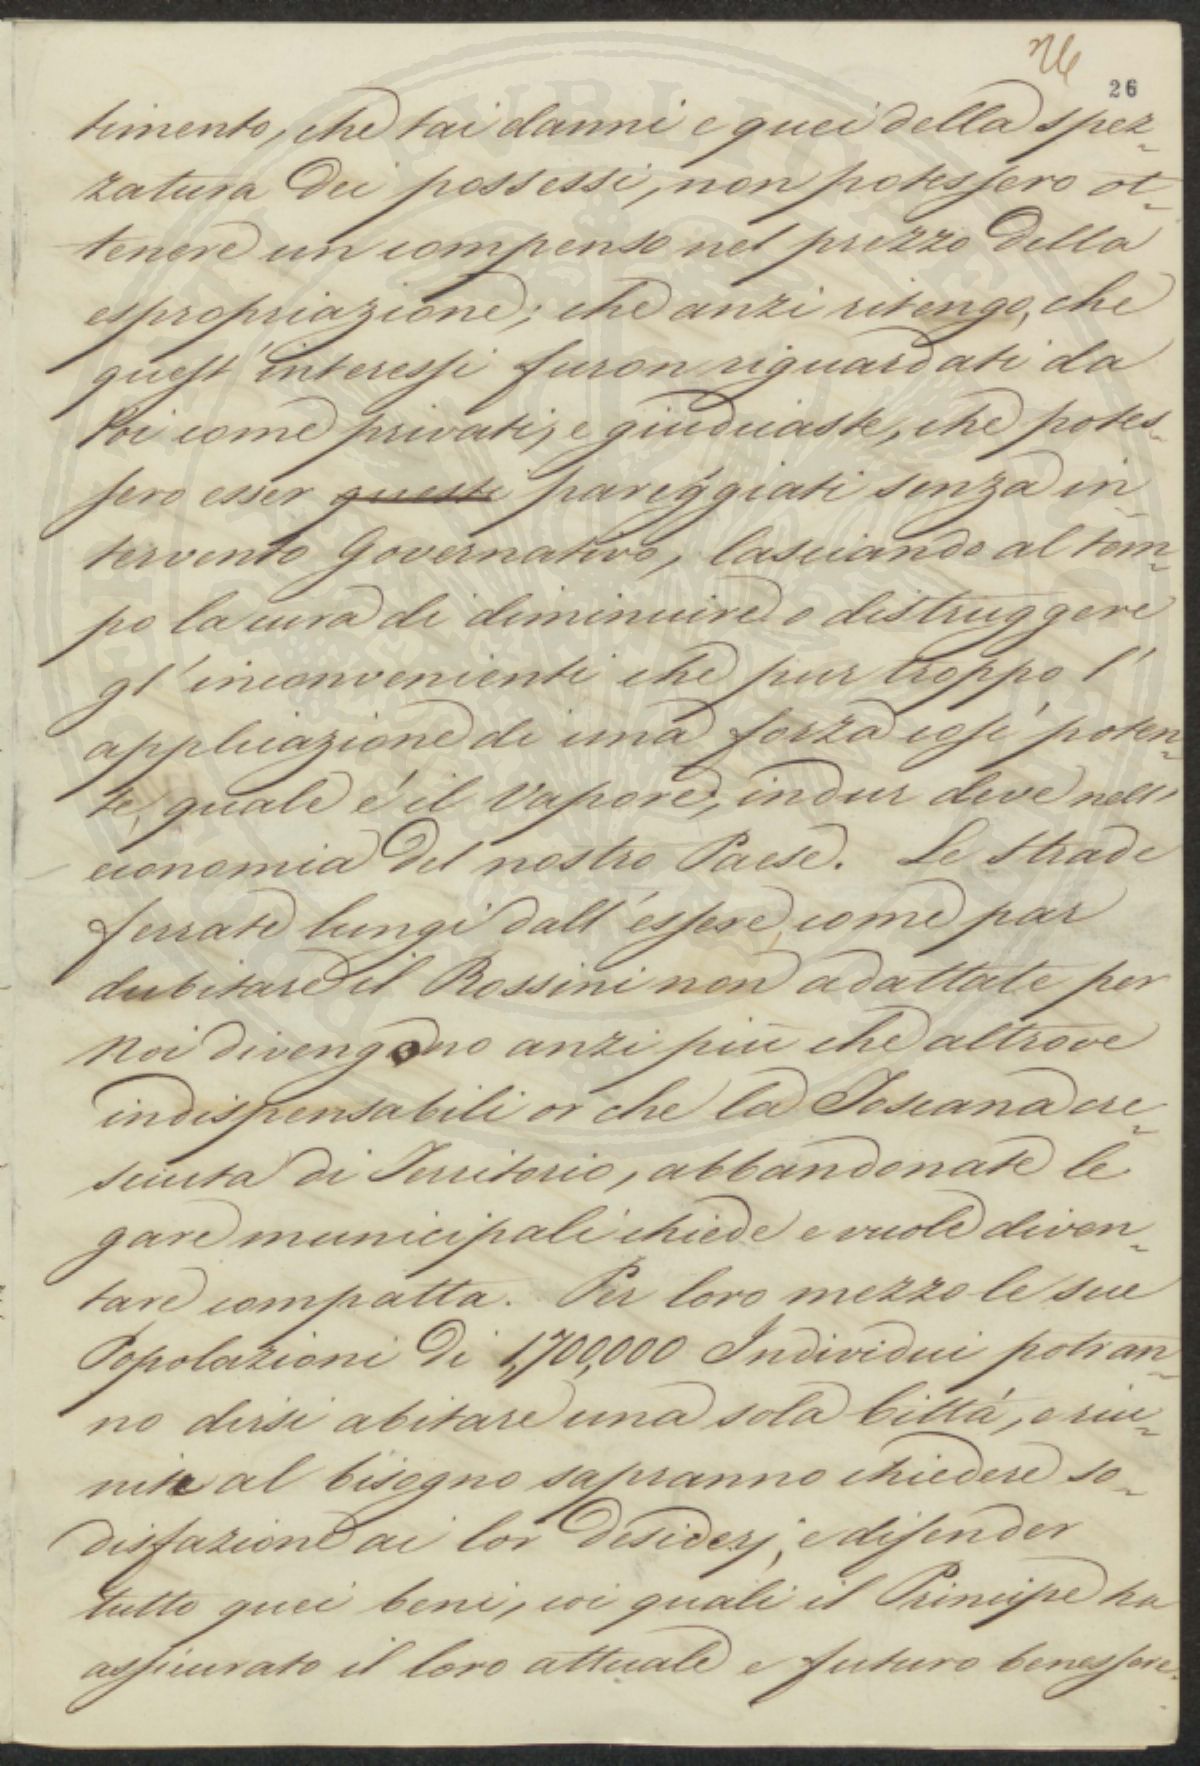 26
26
timento, che tai danni e quei della spez-
zatura dei possessi, non potessero ot-
tenere un compenso nel prezzo della
espropriazione; che anzi ritengo, che
quest'interessi furon riguardati da
Voi come privati, e giudicaste, che potes-
sero esser ~~questi~~ pareggiati senza in-
tervento Governativo, lasciando al tem-
po la cura di diminuire o distruggere
gl'inconvenienti che pur troppo l'
applicazione di una forza così poten-
te, quale é il Vapore, indur deve nell'
economia del nostro Paese. Le Strade
ferrate lungi dall'essere come par
dubitare il Rossini non adattate per
Noi divengono anzi più che altrove
indispensabili or che la Toscana cre-
sciuta di Territorio, abbandonate le
gare municipali chiede e vuole diven-
tare compatta. Per loro mezzo le sue
Popolazioni di 1,700,000 Individui potran-
no dirsi abitare una sola Città, e riu-
nite al bisogno sapranno chiedere so-
disfazione ai lor desiderj, e difender
tutto quei beni, coi quali il Principe ha
assicurato il loro attuale e futuro benessere.